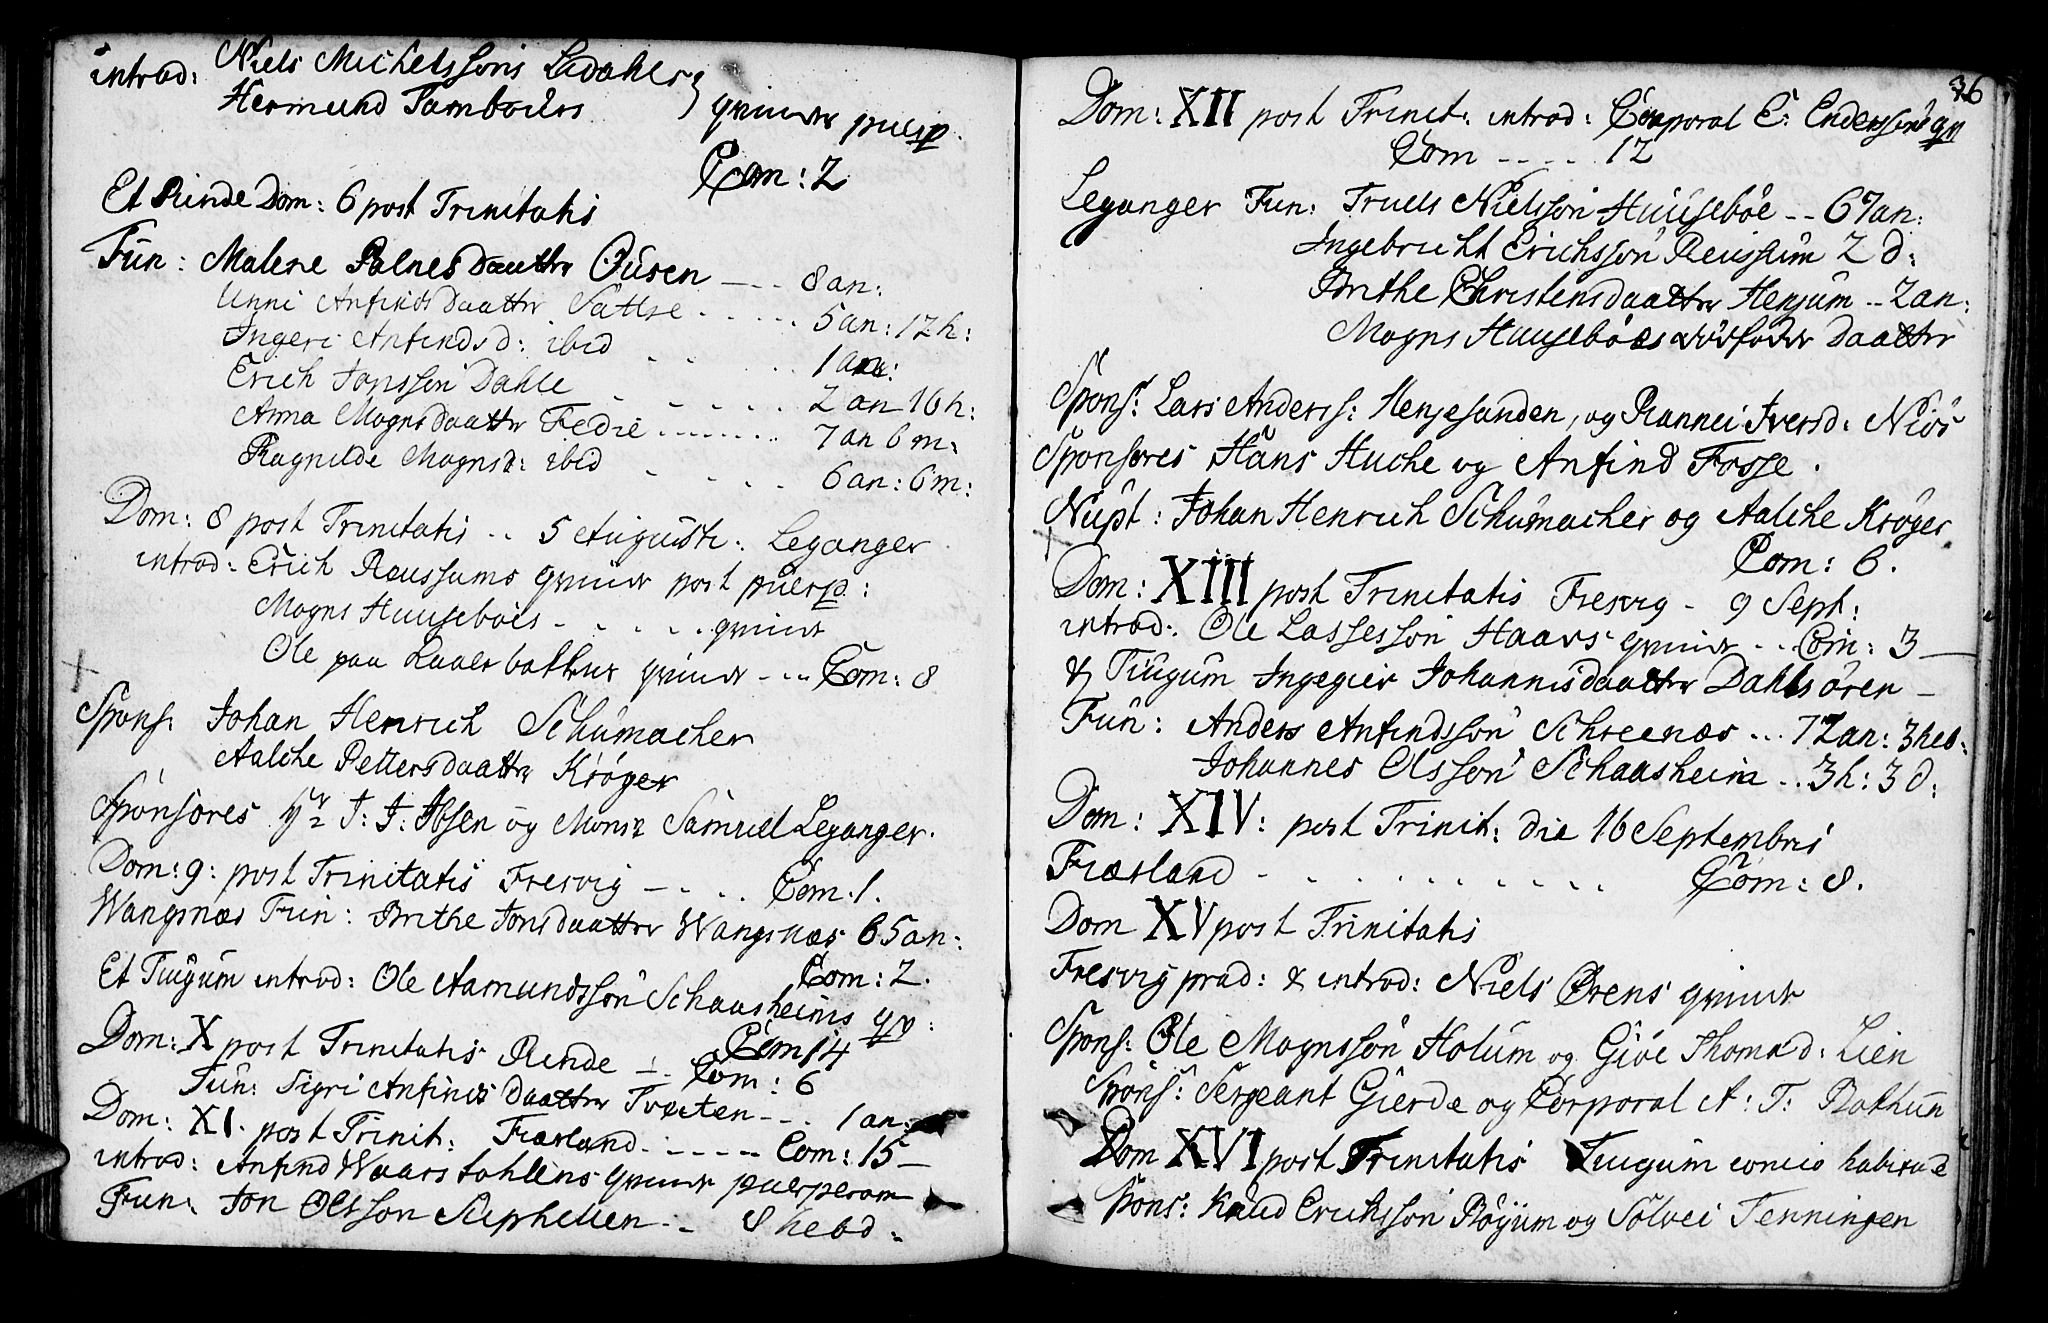 introd: Niels Michelssons Ledahls
Hermund Tambours } qvinder puerp.
Com: 2
Et Rinde Dom: 6 post Trinitatis
Fun: Malene Palnesdaatter Ousen --- 8 an:
Unni Anfindsdaatter Sattre ..... 5 an: 12 h:
Ingeri Anfindsd: ibid .... 1 an:
Erich Jonsson Dahle ..... 2 an 16 h:
Anna Mognsdaatter Fedie ....... 7 an 6 m:
Ragnilde Mognsd: ibid ..... 6 an: 6 m:
Dom: 8 post Trinitatis .. 5 Augusti: Leganger
introd: Erich Reussums qvinde post puerp:
Mogns Huusebøes - . . . . qvinde
Ole paa qvinde --- Com: 8
Spons: Johan Henrich Schumacher
Aalche Pettersdaatter Krøger
Sponsores Hr J: J: Ibsen og Monsr Samuel Leganger.
Dom: 9: post Trinitatis Fresvig - . . . Com. 1.
Wangsnæs Fun: Brithe Jonsdaatter Wangsnæs 65 an:
Com: 2.
Et Tiugum introd: Ole Aamundsson Schaasheims qv:
Com 14
Dom: X post Trinitatis Rinde -- Com: 6
Fun: Sigri Anfindsdaatter Tveten --. 1 an:
Dom: XI. post Trinit: Fiærland. ----- Com: 15 -
introd: Anfind Waarstohlens qvinde puerperam
Fun: Jon Olsson Stephellen .. 8 hebd.
36
Dom: XII post Trinit: introd: Corporal E: Enderssons qv
Com .... 12
Leganger Fun: Truels Nielsson Huusebøe -- 67 an:
Ingebricht Erichsson Reussum 2 d:
Brithe Christensdaatter Henjum .. 2 an:
Mogns Huusebøes dødfødte daatter
Spons: Lars Anderss: Henjesanden, og Rannei Iversd: Niøs
Sponsores Hans Huche og Anfind Fosse.
Nupt: Johan Henrich Schumacher og Aalche Krøger
Com: 6.
Dom: XIII post Trinitatis Fresvig - 9 Sept:
introd: Ole Lassesson Haavs qvinde .. Com: 3 -
& Tiugum Ingegier Johannisdaatter Dahlsøren -
Fun: Anders Anfindsson Schreenæs ... 72 an: 3 heb:
Johannes Olsson Schaasheim .. 3 h: 3 d:
Dom: XIV: post Trinit: die 16 Septembris
Fiærland - . . . . . . . . . . Com: 8.
Dom XV post Trinitatis
Fresvig præd: & introd: Niels Ørens qvinde
Spons: Ole Mognsson Holum og Giøe Thomæd: Lien
Spons: Sergeant Gierde og Corporal A: T: Bothun
Dom XVI post Trinitatis Tiugum concio habita è
Spons: Knud Erichsson Røyum og Sølvei Tenningen